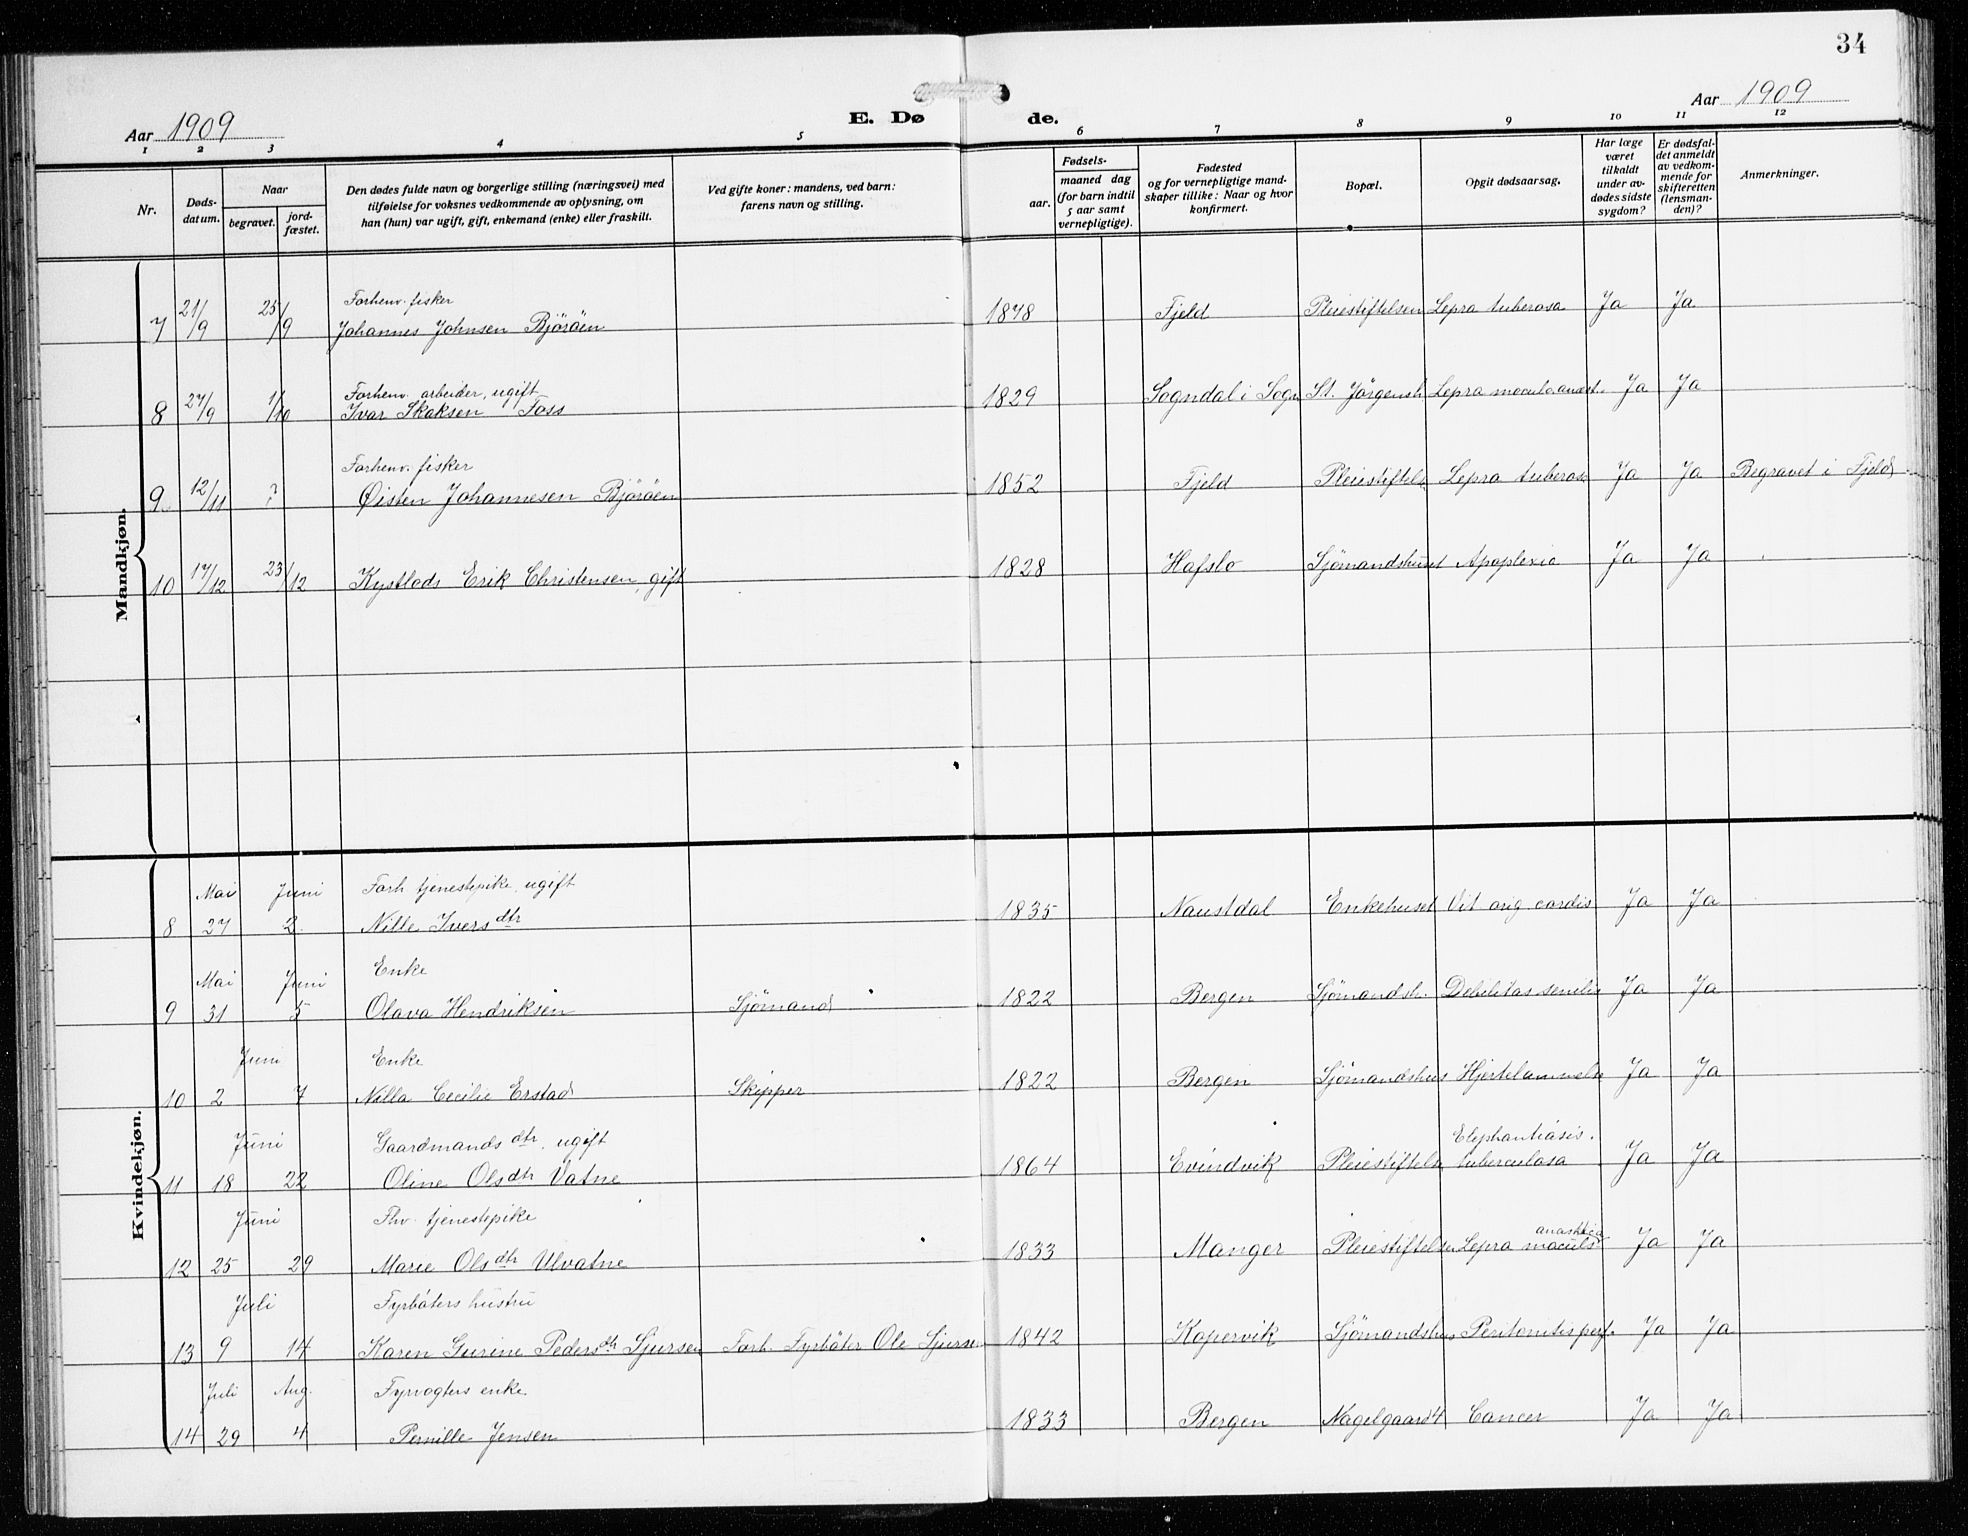 34
Aar 1909
E. Døde.
Aar 1909
1 2 3 4 5 6 7 8 9 10 11 12
Nr.
Døds-datum.
Naar
begravet.
jord-fæstet.
Den dødes fulde navn og borgerlige stilling (næringsvei) med
tilføielse for voksnes vedkommende av oplysning, om
han (hun) var ugift, gift, enkemand (enke) eller fraskilt.
Ved gifte koner: mandens, ved barn:
farens navn og stilling.
Fødsels-
aar.
maaned dag
(for barn indtil
5 aar samt
vernepligtige).
Fødested
og for vernepligtige mand-
skaper tillike: Naar og hvor
konfirmert.
Bopæl.
Opgit dødsaarsag.
Har læge
været
tilkaldt
under av-
dødes sidste
sygdom?
Er dødsfal-
det anmeldt
av vedkom-
mende for
skifteretten
(lensman-
den)?
Anmerkninger.
Mandkjøn.
Forhenv. fisker
7 21/9 25/9 Johannes Johnsen Björöen 1848 Fjeld Pleiestiftelsen Lepra tuberosa Ja Ja
Forhenv. arbeider, ugift
8 27/9 1/10 Ivar Skaksen Foss 1829 Sogndal i Sogn St. Jörgensh Lepra macul. anæst. Ja Ja
Forhenv. fisker
9 12/11 ? Øisten Johannesen Björöen 1852 Fjeld Pleiestiftels Lepra tuberos Ja Ja Begravet i Fjeld
10 17/12 23/12 Kystlods Erik Christensen, gift 1828 Hafslo Sjömandshuset Apoplexia Ja Ja
Kvindekjøn.
Mai Juni Forh tjenestepike, ugift
8 27 2 Nille Iversdtr 1835 Naustdal Enkehuset Vit. org. cordis Ja Ja
Mai Juni Enke
9 31 5 Olava Hendriksen Sjömand 1822 Bergen Sjömandsh. Debilitas senilis Ja Ja
Juni Enke
10 2 7 Nilla Cecilie Erstad Skipper 1822 Bergen Sjömandshus Hjertelammelse Ja Ja
Juni Gaardmandsdtr, ugift Elephantiasis
11 18 22 Oline Olsdtr Vatne 1864 Evindvik Pleiestiftels tuberculosa Ja Ja
Juni Fhv. tjenestepike
12 25 29 Marie Olsdtr Ulvatne 1833 Manger Pleiestiftelse Lepra maculs Ja Ja
Juli Fyrböters hustru
13 9 14 Karen Gurine Pedersdtr Sjursen Forh. Fyrböter Ole Sjursen 1842 Kopervik Sjömandshus Peritonitis perf. Ja Ja
Juli Aug. Fyrvogters enke
14 29 4 Pernille Jensen 1833 Bergen Nagelgaard 4 Cancer Ja Ja